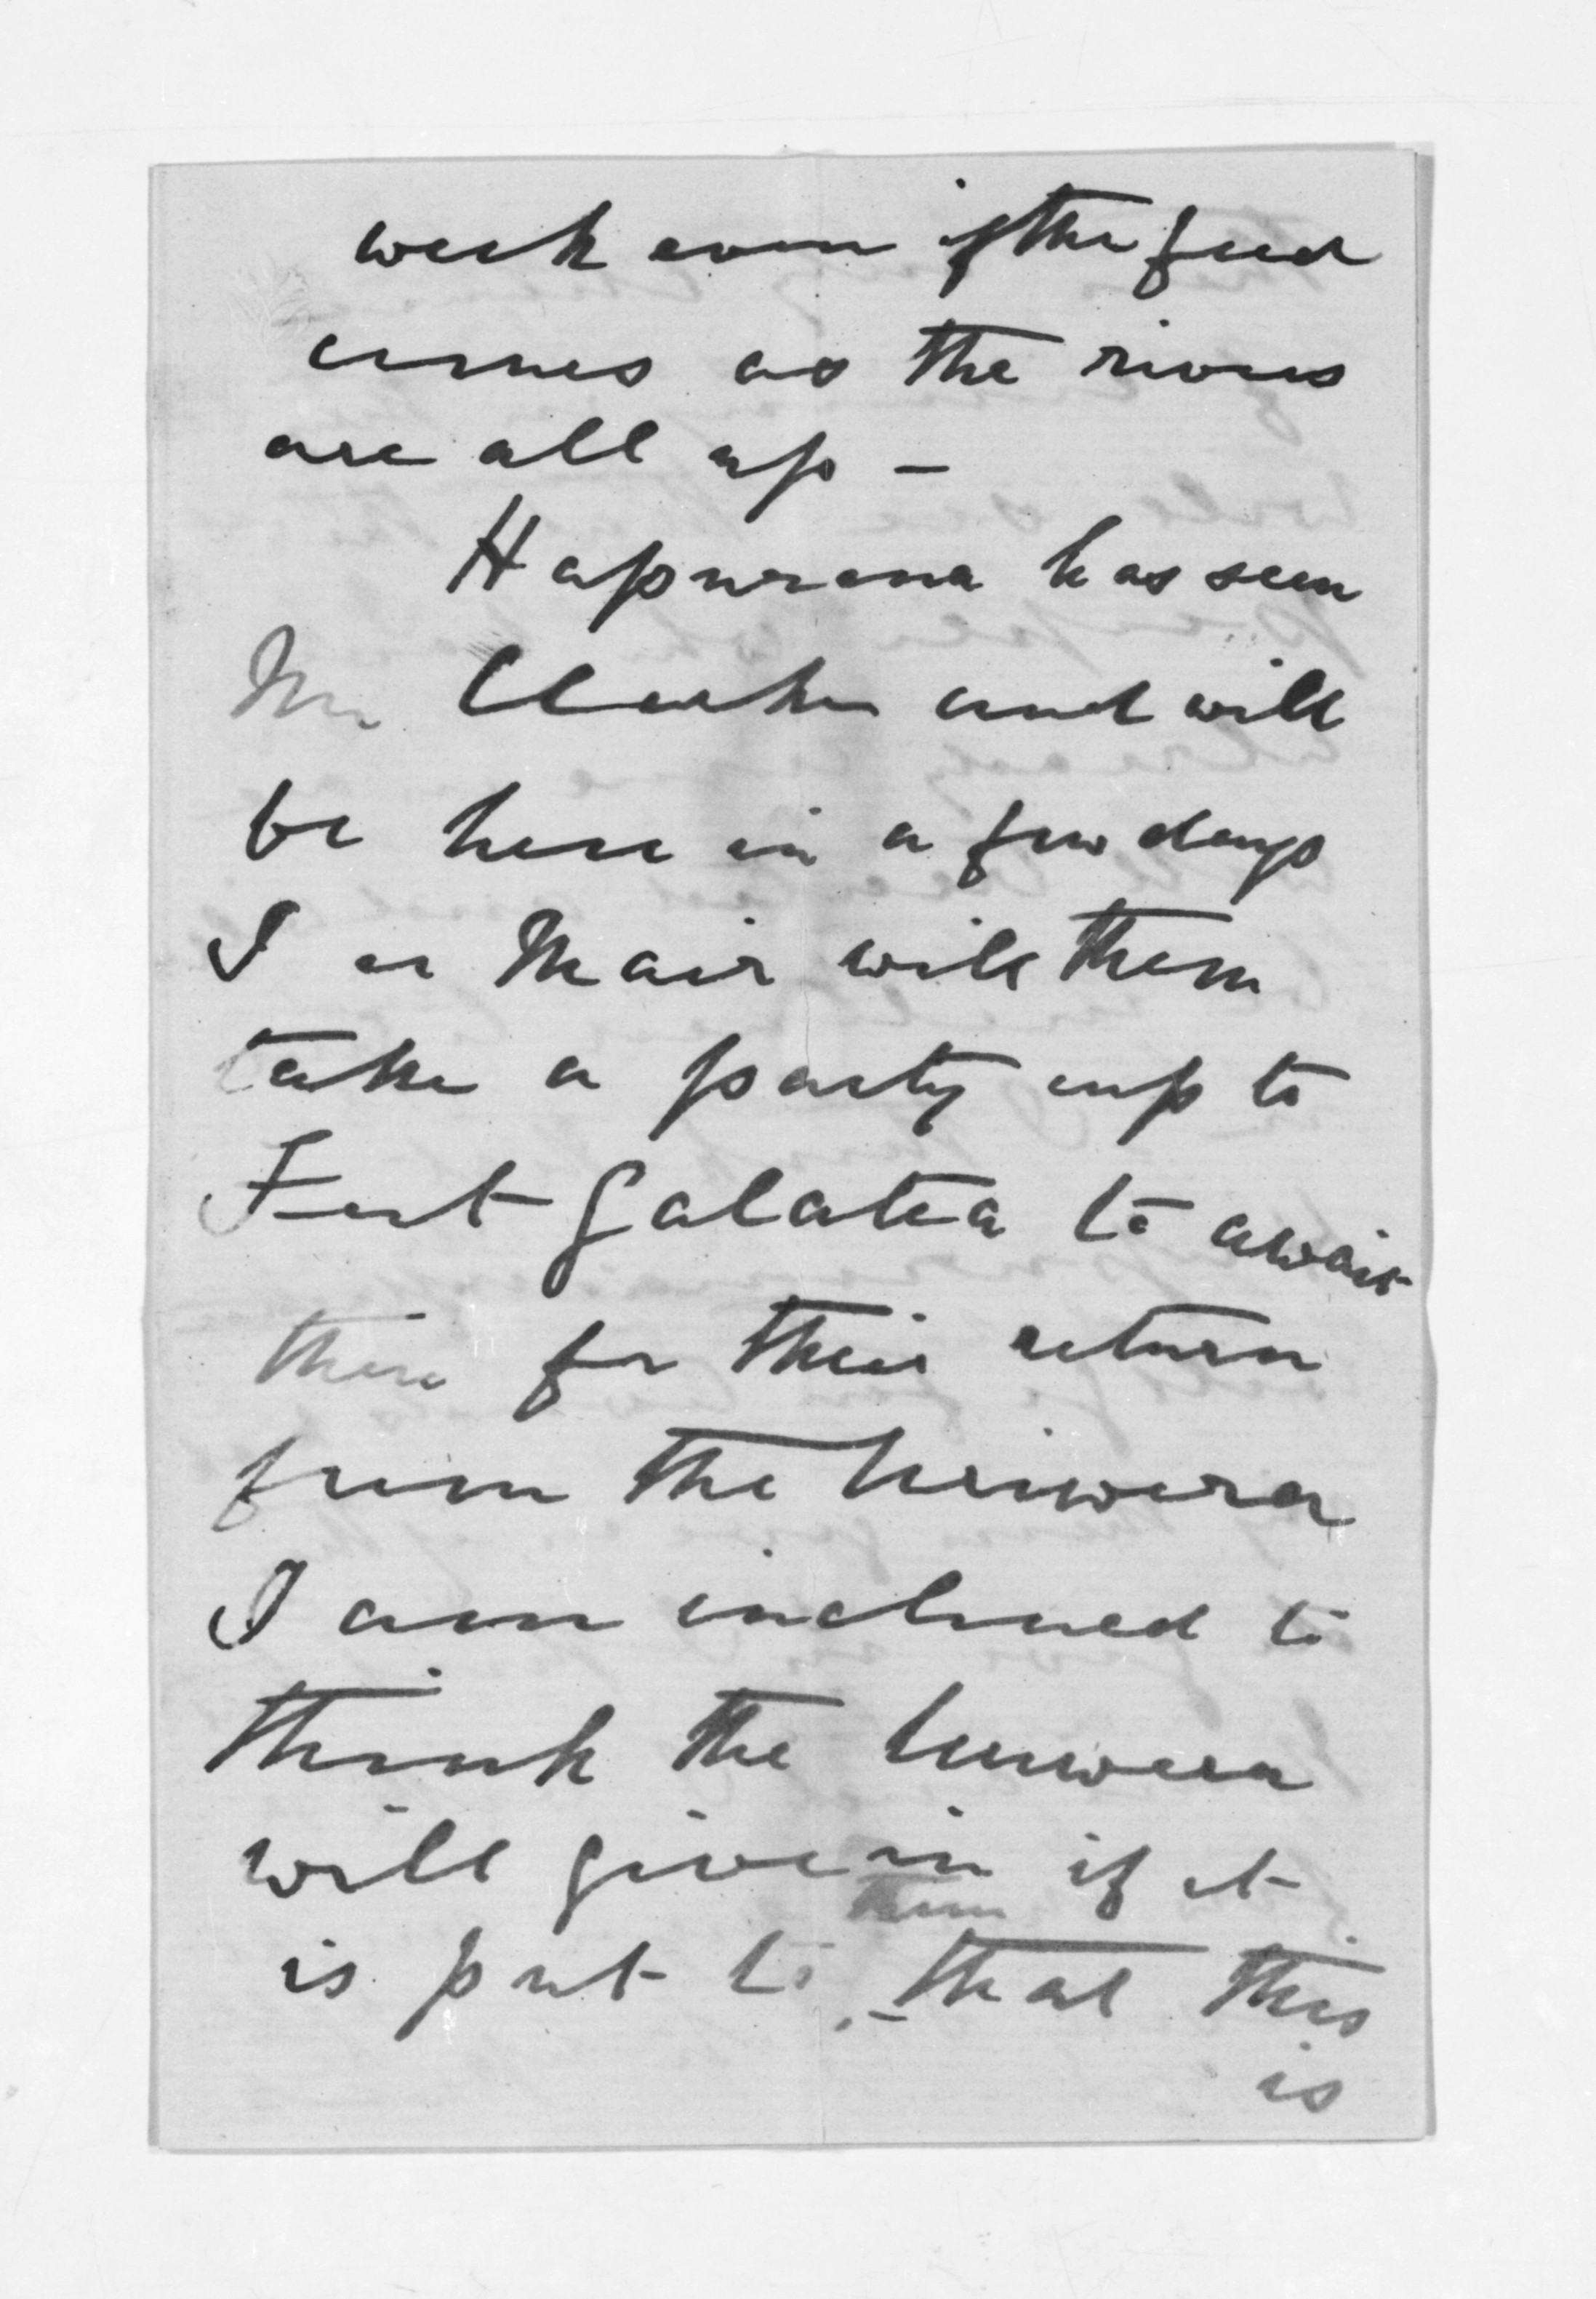 week even if the food
comes as the rivers
are all up –
Hapurona has seen
Mr Clarke and will
be here in a few days
I or Mair will then
take a party up to
Fort Galatea to await
there for their return
from the Uriwera
I am inclined to
think the Uriwera
will give in if it
them
is put to that this
is